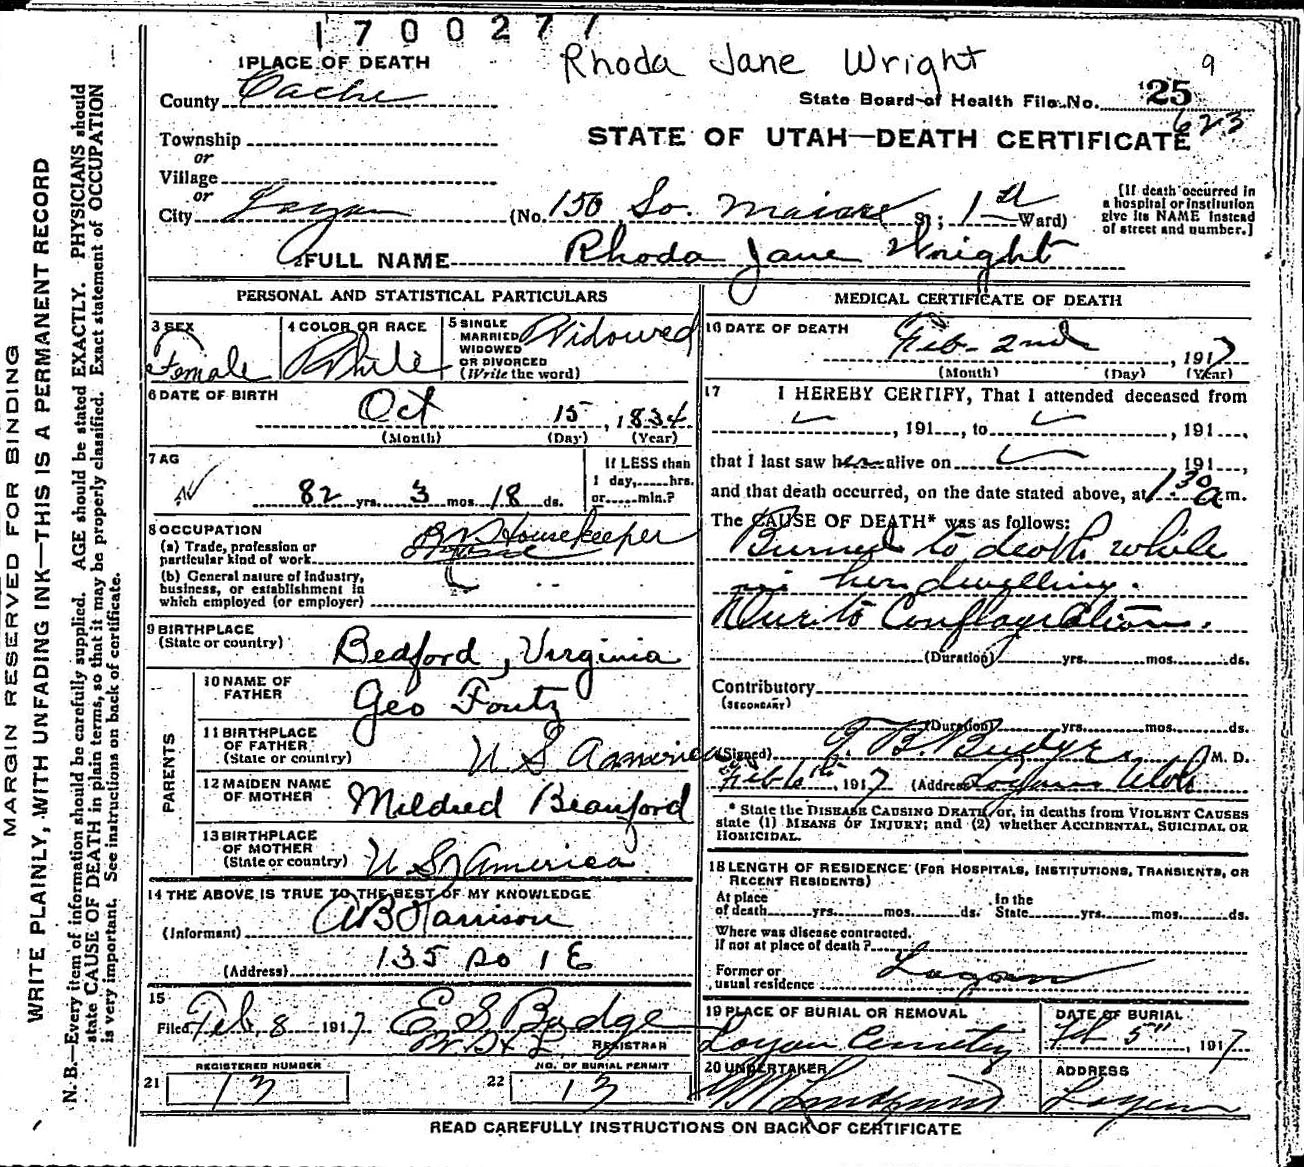 1700277
Rhoda Jane Wright
9
1 PLACE OF DEATH
County Cache
State Board of Health File No. 25
623
STATE OF UTAH—DEATH CERTIFICATE
Township
or
Village
or
City Logan (No. 150 So. St; 1st Ward)
[If death occurred in
a hospital or institution
give its NAME instead
of street and number.]
2 FULL NAME Rhoda Jane Wright
PERSONAL AND STATISTICAL PARTICULARS
3 SEX
Female
4 COLOR OR RACE
White
5 SINGLE
MARRIED
WIDOWED
OR DIVORCED
(Write the word)
Widowed
6 DATE OF BIRTH
Oct 15, 1834
(Month) (Day) (Year)
7 AG
82 yrs. 3 mos. 18 ds.
If LESS than
1 day,.....hrs.
or.....min.?
8 OCCUPATION
(a) Trade, profession or
particular kind of work Housekeeper
(b) General nature of industry,
business, or establishment in
which employed (or employer)
9 BIRTHPLACE
(State or country) Bedford, Virginia
PARENTS
10 NAME OF
FATHER Geo Foutz
11 BIRTHPLACE
OF FATHER
(State or country) U S America
12 MAIDEN NAME
OF MOTHER Mildred Beauford
13 BIRTHPLACE
OF MOTHER
(State or country) U S America
14 THE ABOVE IS TRUE TO THE BEST OF MY KNOWLEDGE
(Informant) A B Harrison
(Address) 135 So 1 E
15
Filed Feb. 8 1917 E S Budge
REGISTRAR
21 REGISTERED NUMBER
13
22 NO. OF BURIAL PERMIT
13
MEDICAL CERTIFICATE OF DEATH
16 DATE OF DEATH
Feb. 2nd, 1917
(Month) (Day) (Year)
17 I HEREBY CERTIFY, That I attended deceased from
, 191..., to , 191...,
that I last saw her alive on 191...,
and that death occurred, on the date stated above, at 1.30 a m.
The CAUSE OF DEATH* was as follows:
Burned to death while
in her dwelling.
Due to Conflagration.
(Duration) yrs. mos. ds.
Contributory
(SECONDARY)
(Duration) yrs. mos. ds.
(Signed) B. Budge M. D.
Feb 6th, 1917 (Address Logan Utah
* State the DISEASE CAUSING DEATH, or, in deaths from VIOLENT CAUSES
state (1) MEANS OF INJURY; and (2) whether ACCIDENTAL, SUICIDAL OR
HOMICIDAL.
18 LENGTH OF RESIDENCE (FOR HOSPITALS, INSTITUTIONS, TRANSIENTS, OR
RECENT RESIDENTS)
At place
of death yrs. mos. ds.
In the
State yrs. mos. ds.
Where was disease contracted.
If not at place of death?
Former or
usual residence Logan
19 PLACE OF BURIAL OR REMOVAL
Logan Cemetery
DATE OF BURIAL
Feb 5", 1917
20 UNDERTAKER
Lindquist
ADDRESS
Logan
READ CAREFULLY INSTRUCTIONS ON BACK OF CERTIFICATE
MARGIN RESERVED FOR BINDING
WRITE PLAINLY, WITH UNFADING INK—THIS IS A PERMANENT RECORD
N. B.—Every item of information should be carefully supplied. AGE should be stated EXACTLY. PHYSICIANS should
state CAUSE OF DEATH in plain terms, so that it may be properly classified. Exact statement of OCCUPATION
is very important. See instructions on back of certificate.